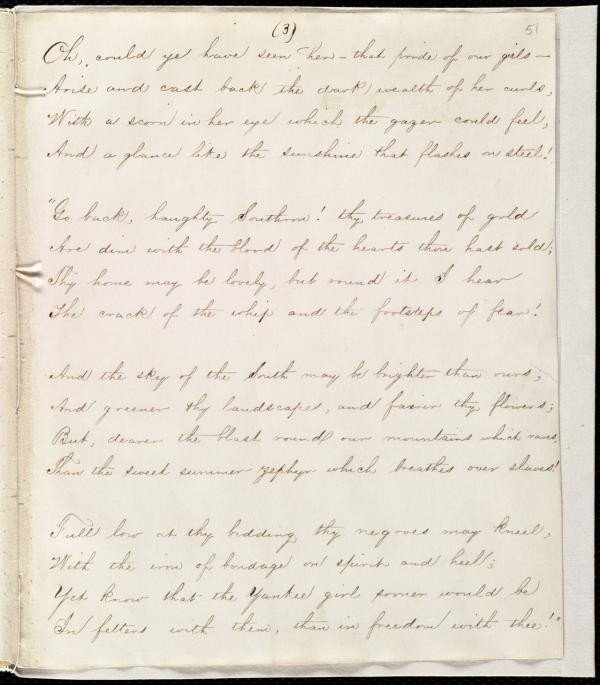 (3)
51
Oh, could ye have seen her – that pride of our girls –
Arise and cast back the dark wealth of her curls,
With a scorn in her eye which the gazer could feel,
And a glance like the sunshine that flashes on steel!
"Go back, haughty Southron! thy treasures of gold
Are dim with the blood of the hearts thou hast sold;
Thy home may be lovely, but round it I hear
The crack of the whip and the footsteps of fear!
And the sky of the South may be brighter than ours;
And greener thy landscapes, and fairer thy flowers;
But, dearer the blast round our mountains which raves,
Than the sweet summer zephyr which breathes over slaves!
Full low at thy bidding thy negroes may kneel,
With the iron of bondage on spirit and heel;
Yet know that the Yankee girl sooner would be
In fetters with them, than in freedom with thee!"